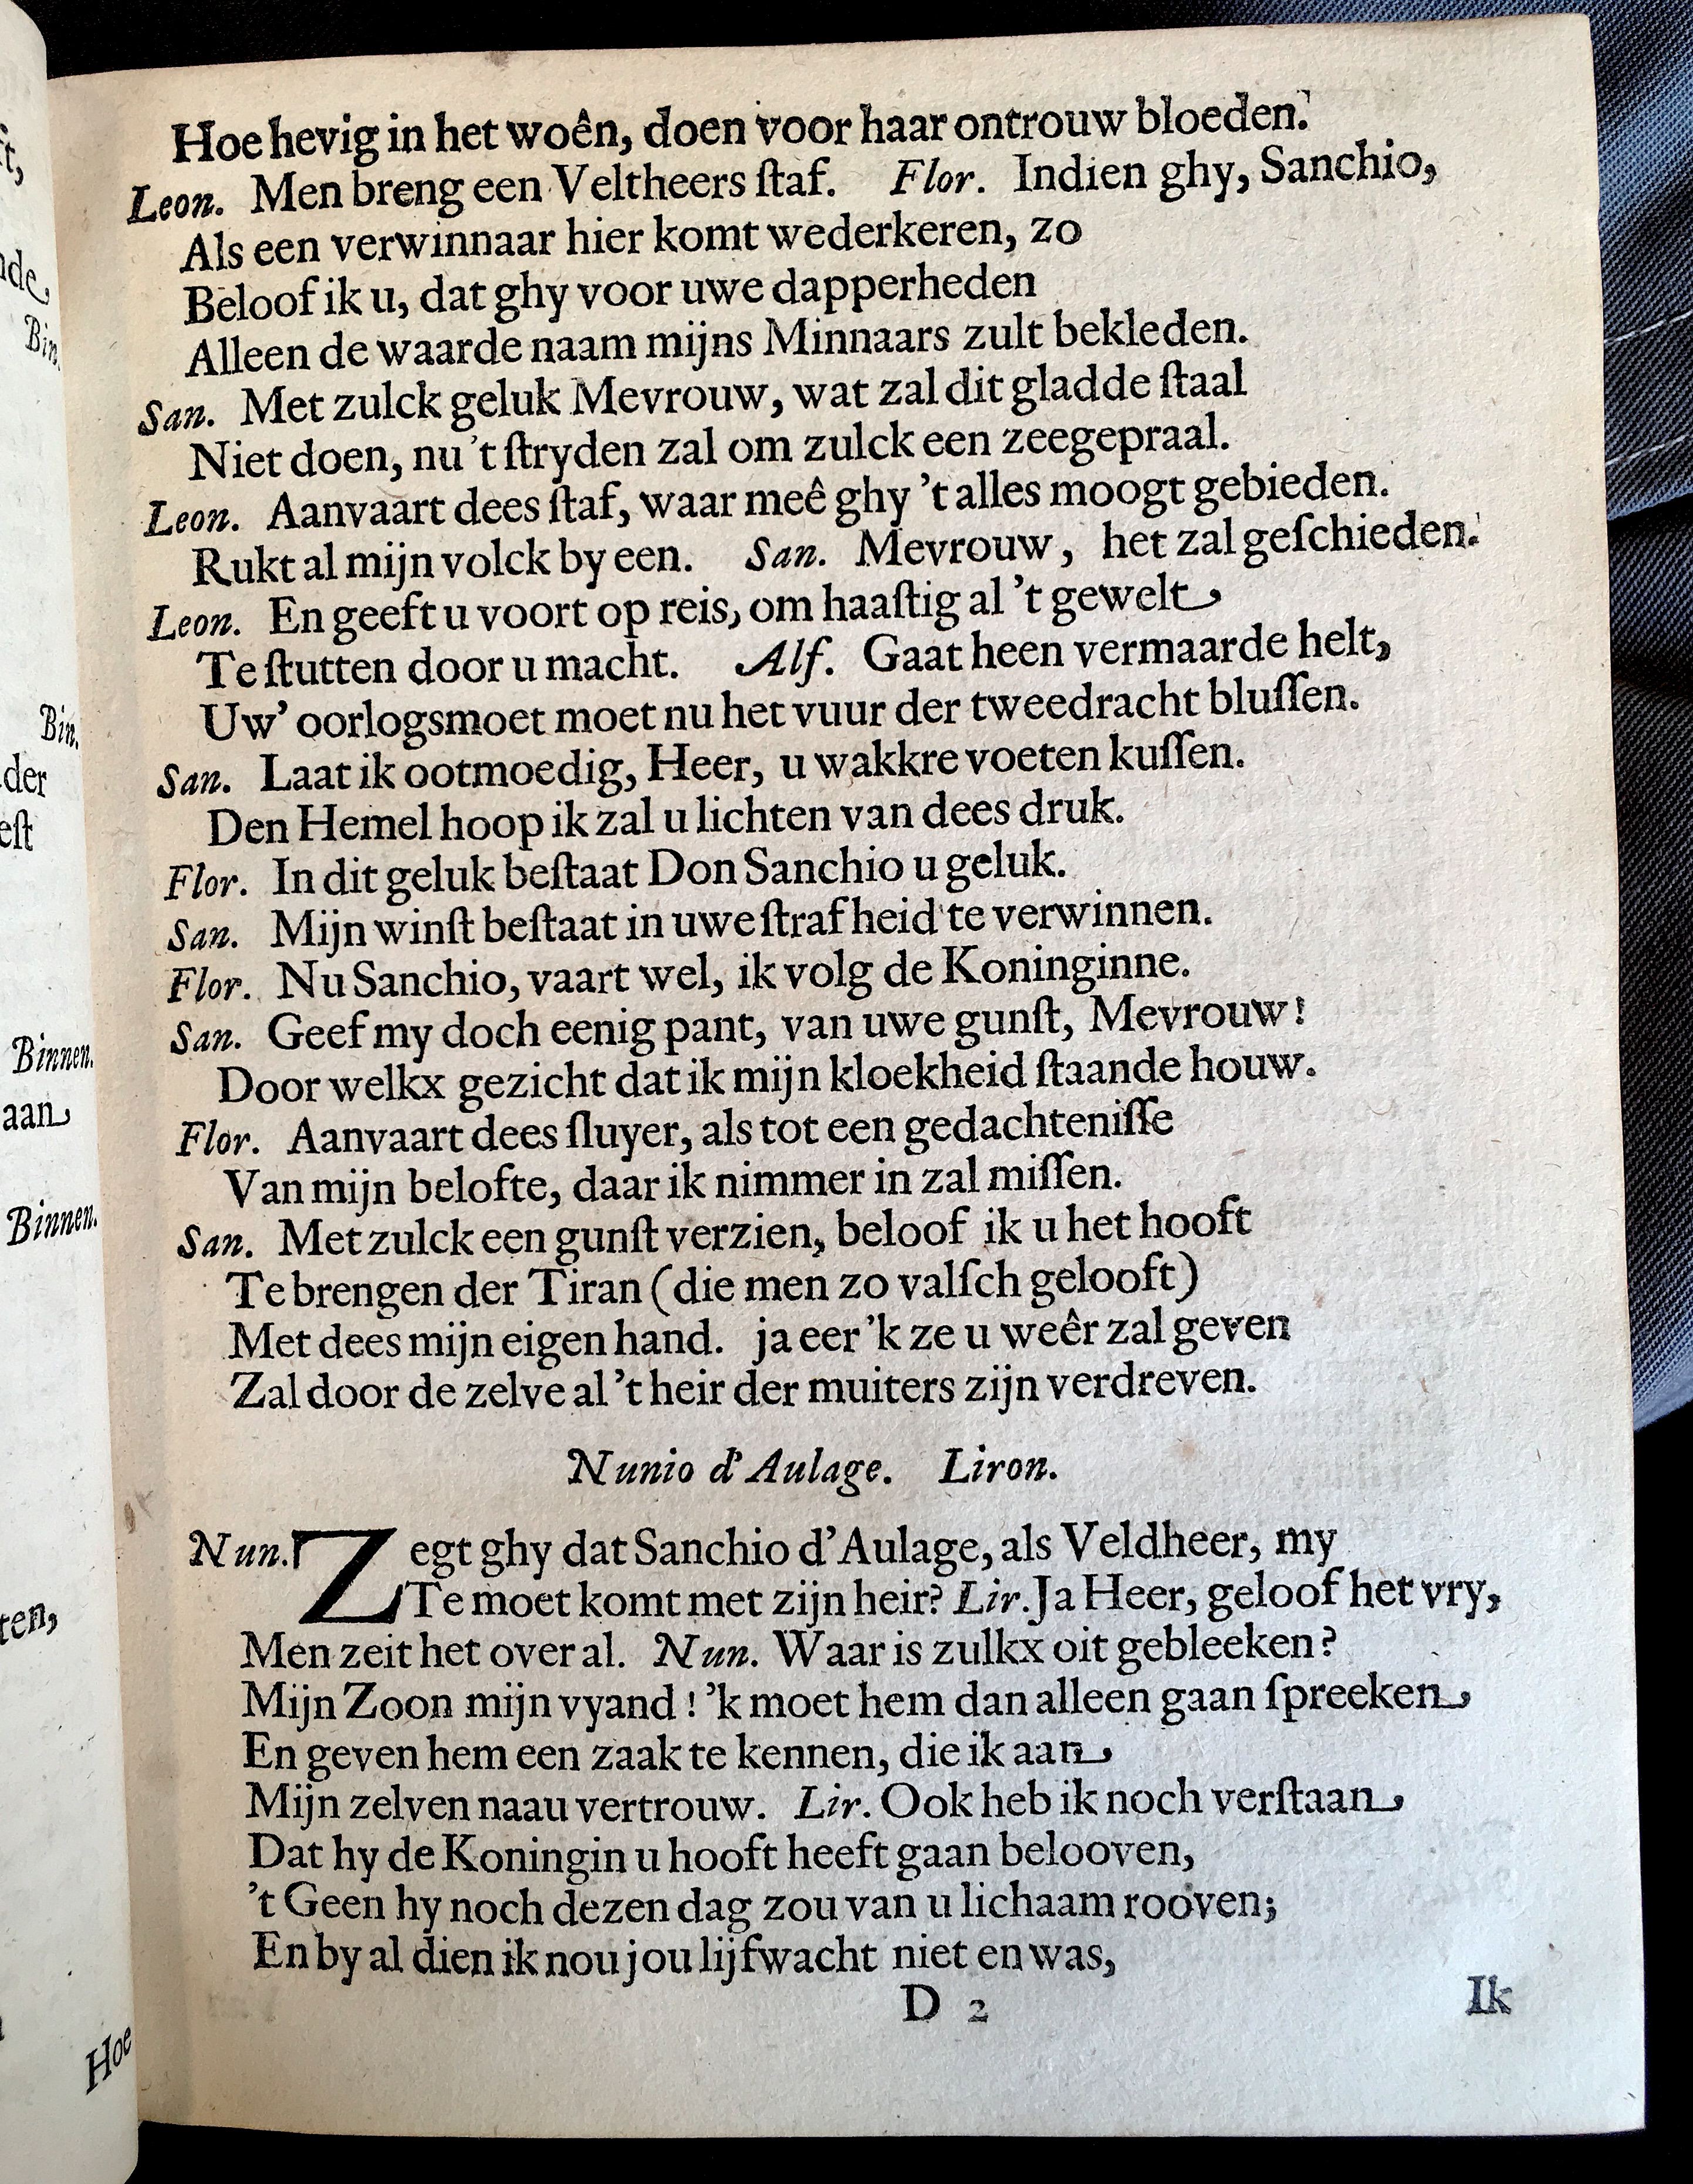 Hoe hevig in het woên, doen voor haar ontrouw bloeden.
Leon. Men breng een Veltheers ſtaf. Flor. Indien ghy, Sanchio,
Als een verwinnaar hier komt wederkeren, zo
Beloof ik u, dat ghy voor uwe dapperheden
Alleen de waarde naam mijns Minnaars zult bekleden.
San. Met zulck geluk Mevrouw, wat zal dit gladde ſtaal
Niet doen, nu 't ſtryden zal om zulck een zeegepraal.
Leon. Aanvaart dees ſtaf, waar meê ghy 't alles moogt gebieden.
Rukt al mijn volck by een. San. Mevrouw, het zal geſchieden.
Leon. En geeft u voort op reis, om haaſtig al 't gewelt
Te ſtutten door u macht. Alf. Gaat heen vermaarde helt,
Uw' oorlogsmoet moet nu het vuur der tweedracht bluſſen.
San. Laat ik ootmoedig, Heer, u wakkre voeten kuſſen.
Den Hemel hoop ik zal u lichten van dees druk.
Flor. In dit geluk beſtaat Don Sanchio u geluk.
San. Mijn winſt beſtaat in uwe ſtrafheid te verwinnen.
Flor. Nu Sanchio, vaart wel, ik volg de Koninginne.
San. Geef my doch eenig pant, van uwe gunſt, Mevrouw!
Door welkx gezicht dat ik mijn kloekheid ſtaande houw.
Flor. Aanvaart dees ſluyer, als tot een gedachteniſſe
Van mijn belofte, daar ik nimmer in zal miſſen.
San. Met zulck een gunſt verzien, beloof ik u het hooft
Te brengen der Tiran (die men zo valſch gelooft)
Met dees mijn eigen hand. ja eer 'k ze u weêr zal geven
Zal door de zelve al 't heir der muiters zijn verdreven.
Nunio d'Aulage. Liron.
Nun. Zegt ghy dat Sanchio d'Aulage, als Veldheer, my
Te moet komt met zijn heir? Lir. Ja Heer, geloof het vry,
Men zeit het over al. Nun. Waar is zulkx oit gebleeken?
Mijn Zoon mijn vyand! 'k moet hem dan alleen gaan ſpreeken
En geven hem een zaak te kennen, die ik aan
Mijn zelven naau vertrouw. Lir. Ook heb ik noch verſtaan
Dat hy de Koningin u hooft heeft gaan belooven,
't Geen hy noch dezen dag zou van u lichaam rooven;
En by al dien ik nou jou lijfwacht niet en was,
D 2
Ik
Bin.
Bin.
der
Binnen.
aan
Binnen.
Hoe